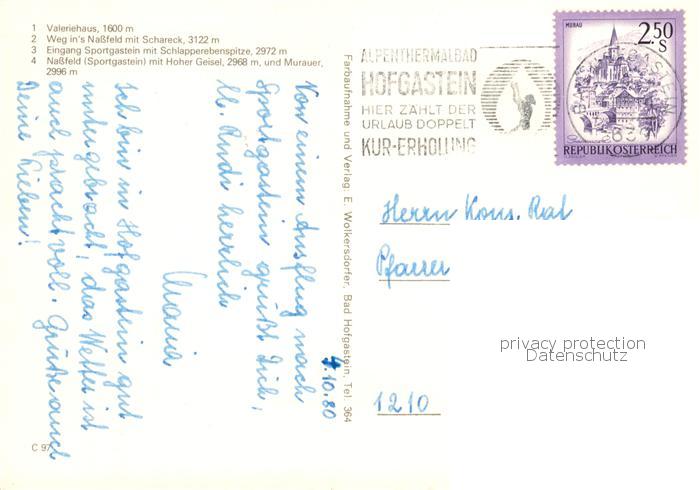 1 Valeriehaus, 1600 m
2 Weg in's Naßfeld mit Schareck, 3122 m
3 Eingang Sportgastein mit Schlapperebenspitze, 2972 m
4 Naßfeld (Sportgastein) mit Hoher Geisel, 2968 m, und Murauer,
2996 m
ALPENTHERMALBAD
HOFGASTEIN
HIER ZÄHLT DER
URLAUB DOPPELT
KUR-ERHOLUNG
MURAU
2.50
S
REPUBLIK ÖSTERREICH
Farbaufnahme und Verlag: E. Wolkersdorfer, Bad Hofgastein, Tel. 364
4.10.80
Von einem Ausflug nach
Sportgastein grüßt Dich,
lb. Rudi herzlich
Maria
Ich bin in Hofgastein gut
untergebracht, das Wetter ist
auch prachtvoll. Grüße auch
Deine Lieben!
Herrn Kons. Rat
Pfarrer
1210
privacy protection
Datenschutz
C 97